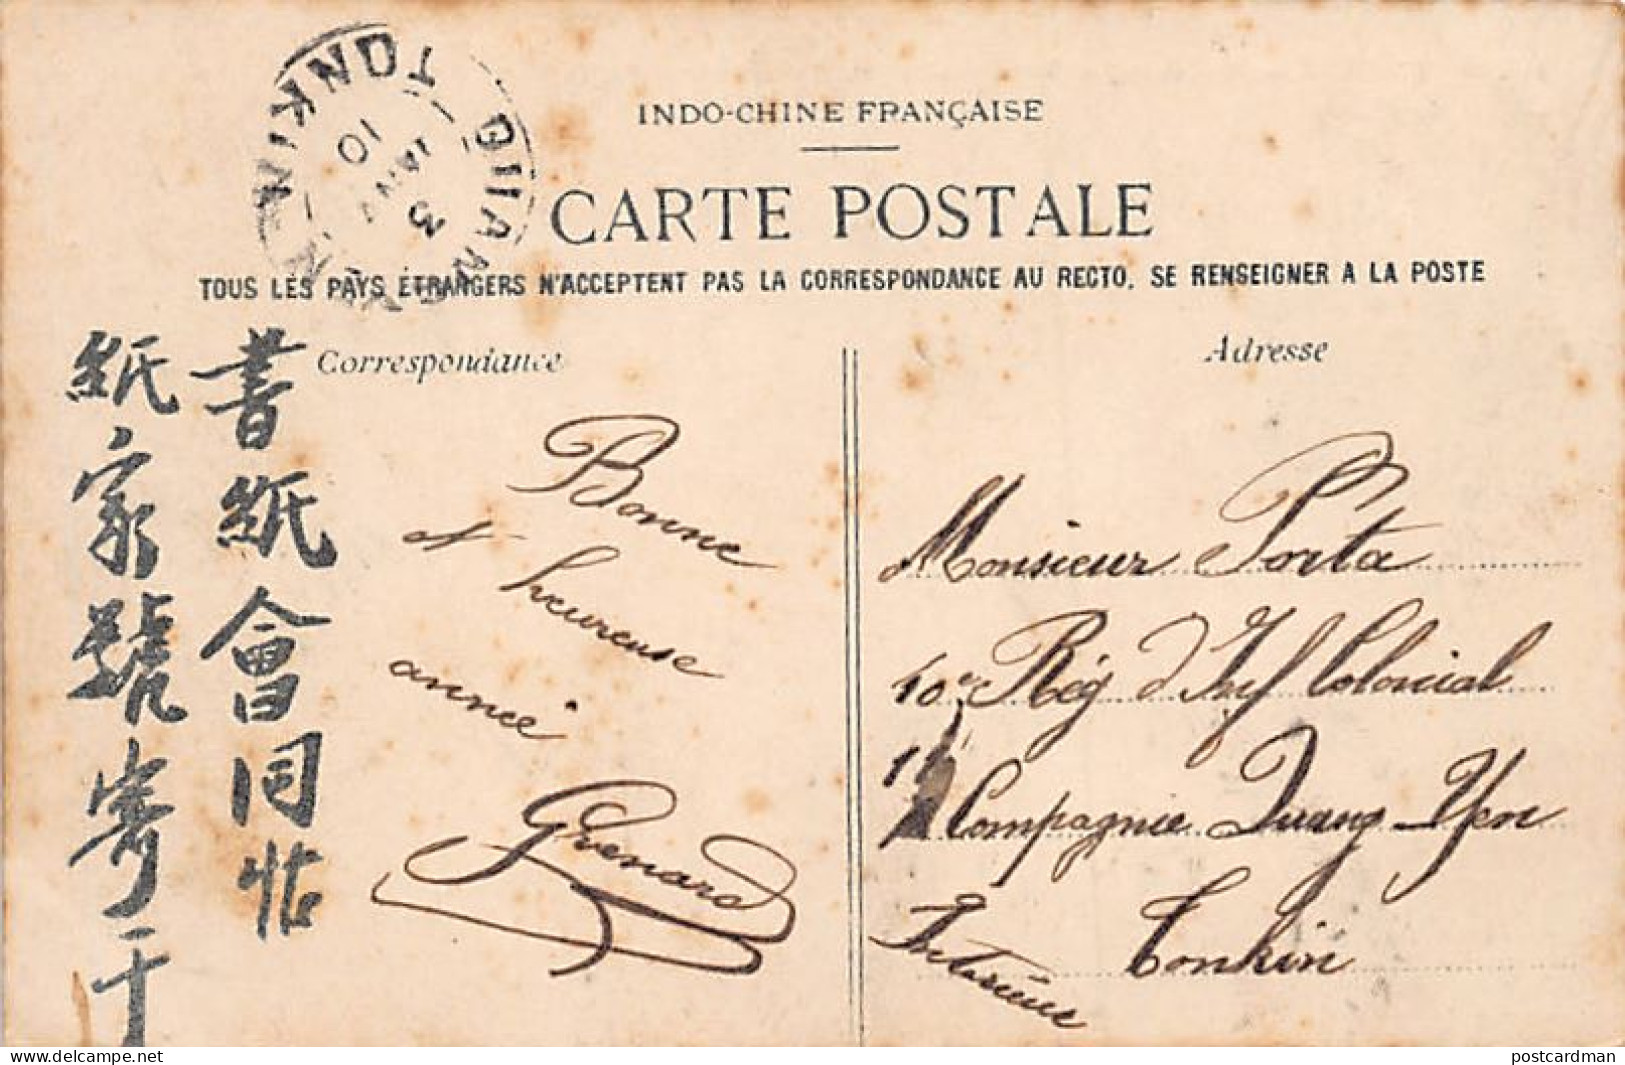 TONKIN
10
JANV
3
INDO-CHINE FRANÇAISE
CARTE POSTALE
TOUS LES PAYS ÉTRANGERS N'ACCEPTENT PAS LA CORRESPONDANCE AU RECTO, SE RENSEIGNER A LA POSTE
Correspondance
Adresse
書紙會同帖
紙家號寄于
Bonne
et heureuse
année
Grenard
Monsieur Porta
10e Rég d'Inf Colonial
11 Compagnie Quang-Yen
Tonkin
Intérieur
delcampe.net
postcardman